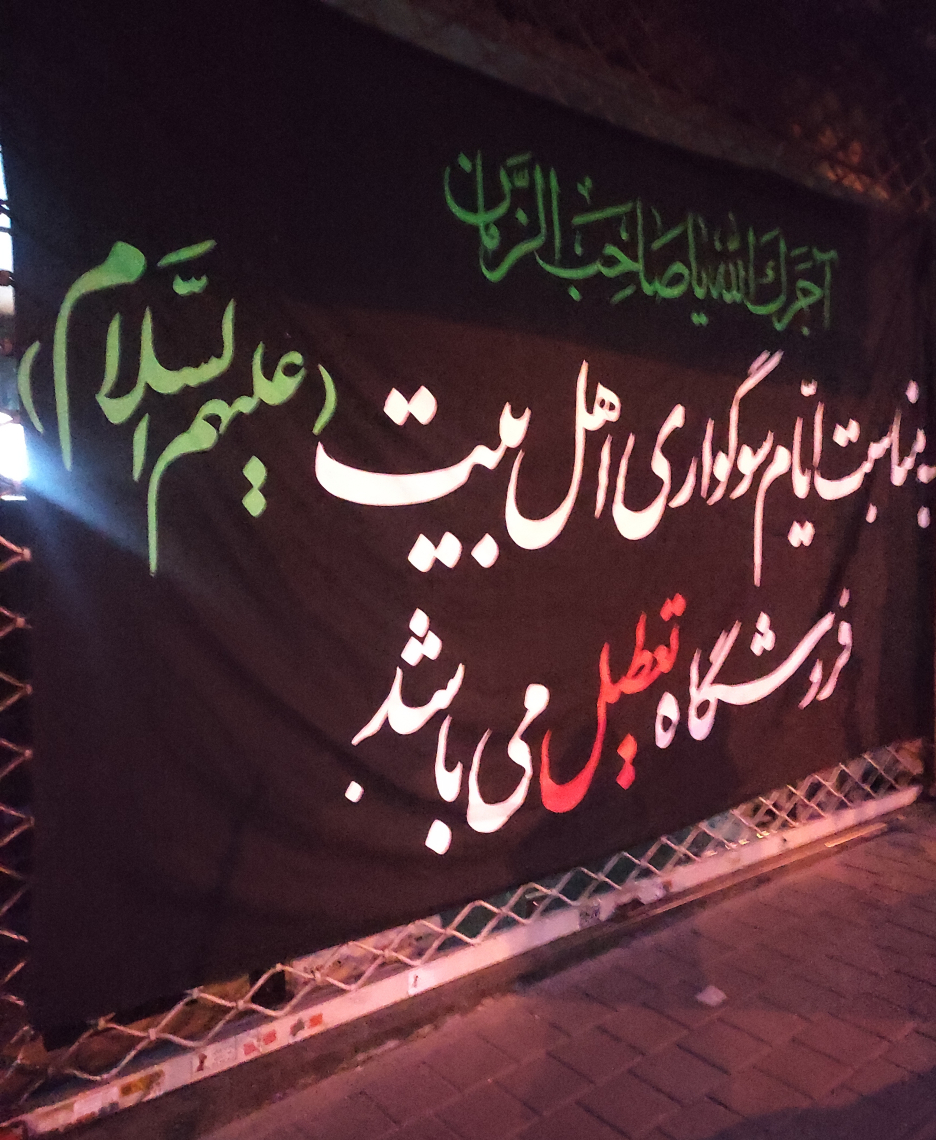 آجَرَكَ الله يا صاحِبَ الزَّمان
به مناسبت ایّام سوگواری اهل بیت (علیهم السَّلام)
فروشگاه تعطیل می باشد.